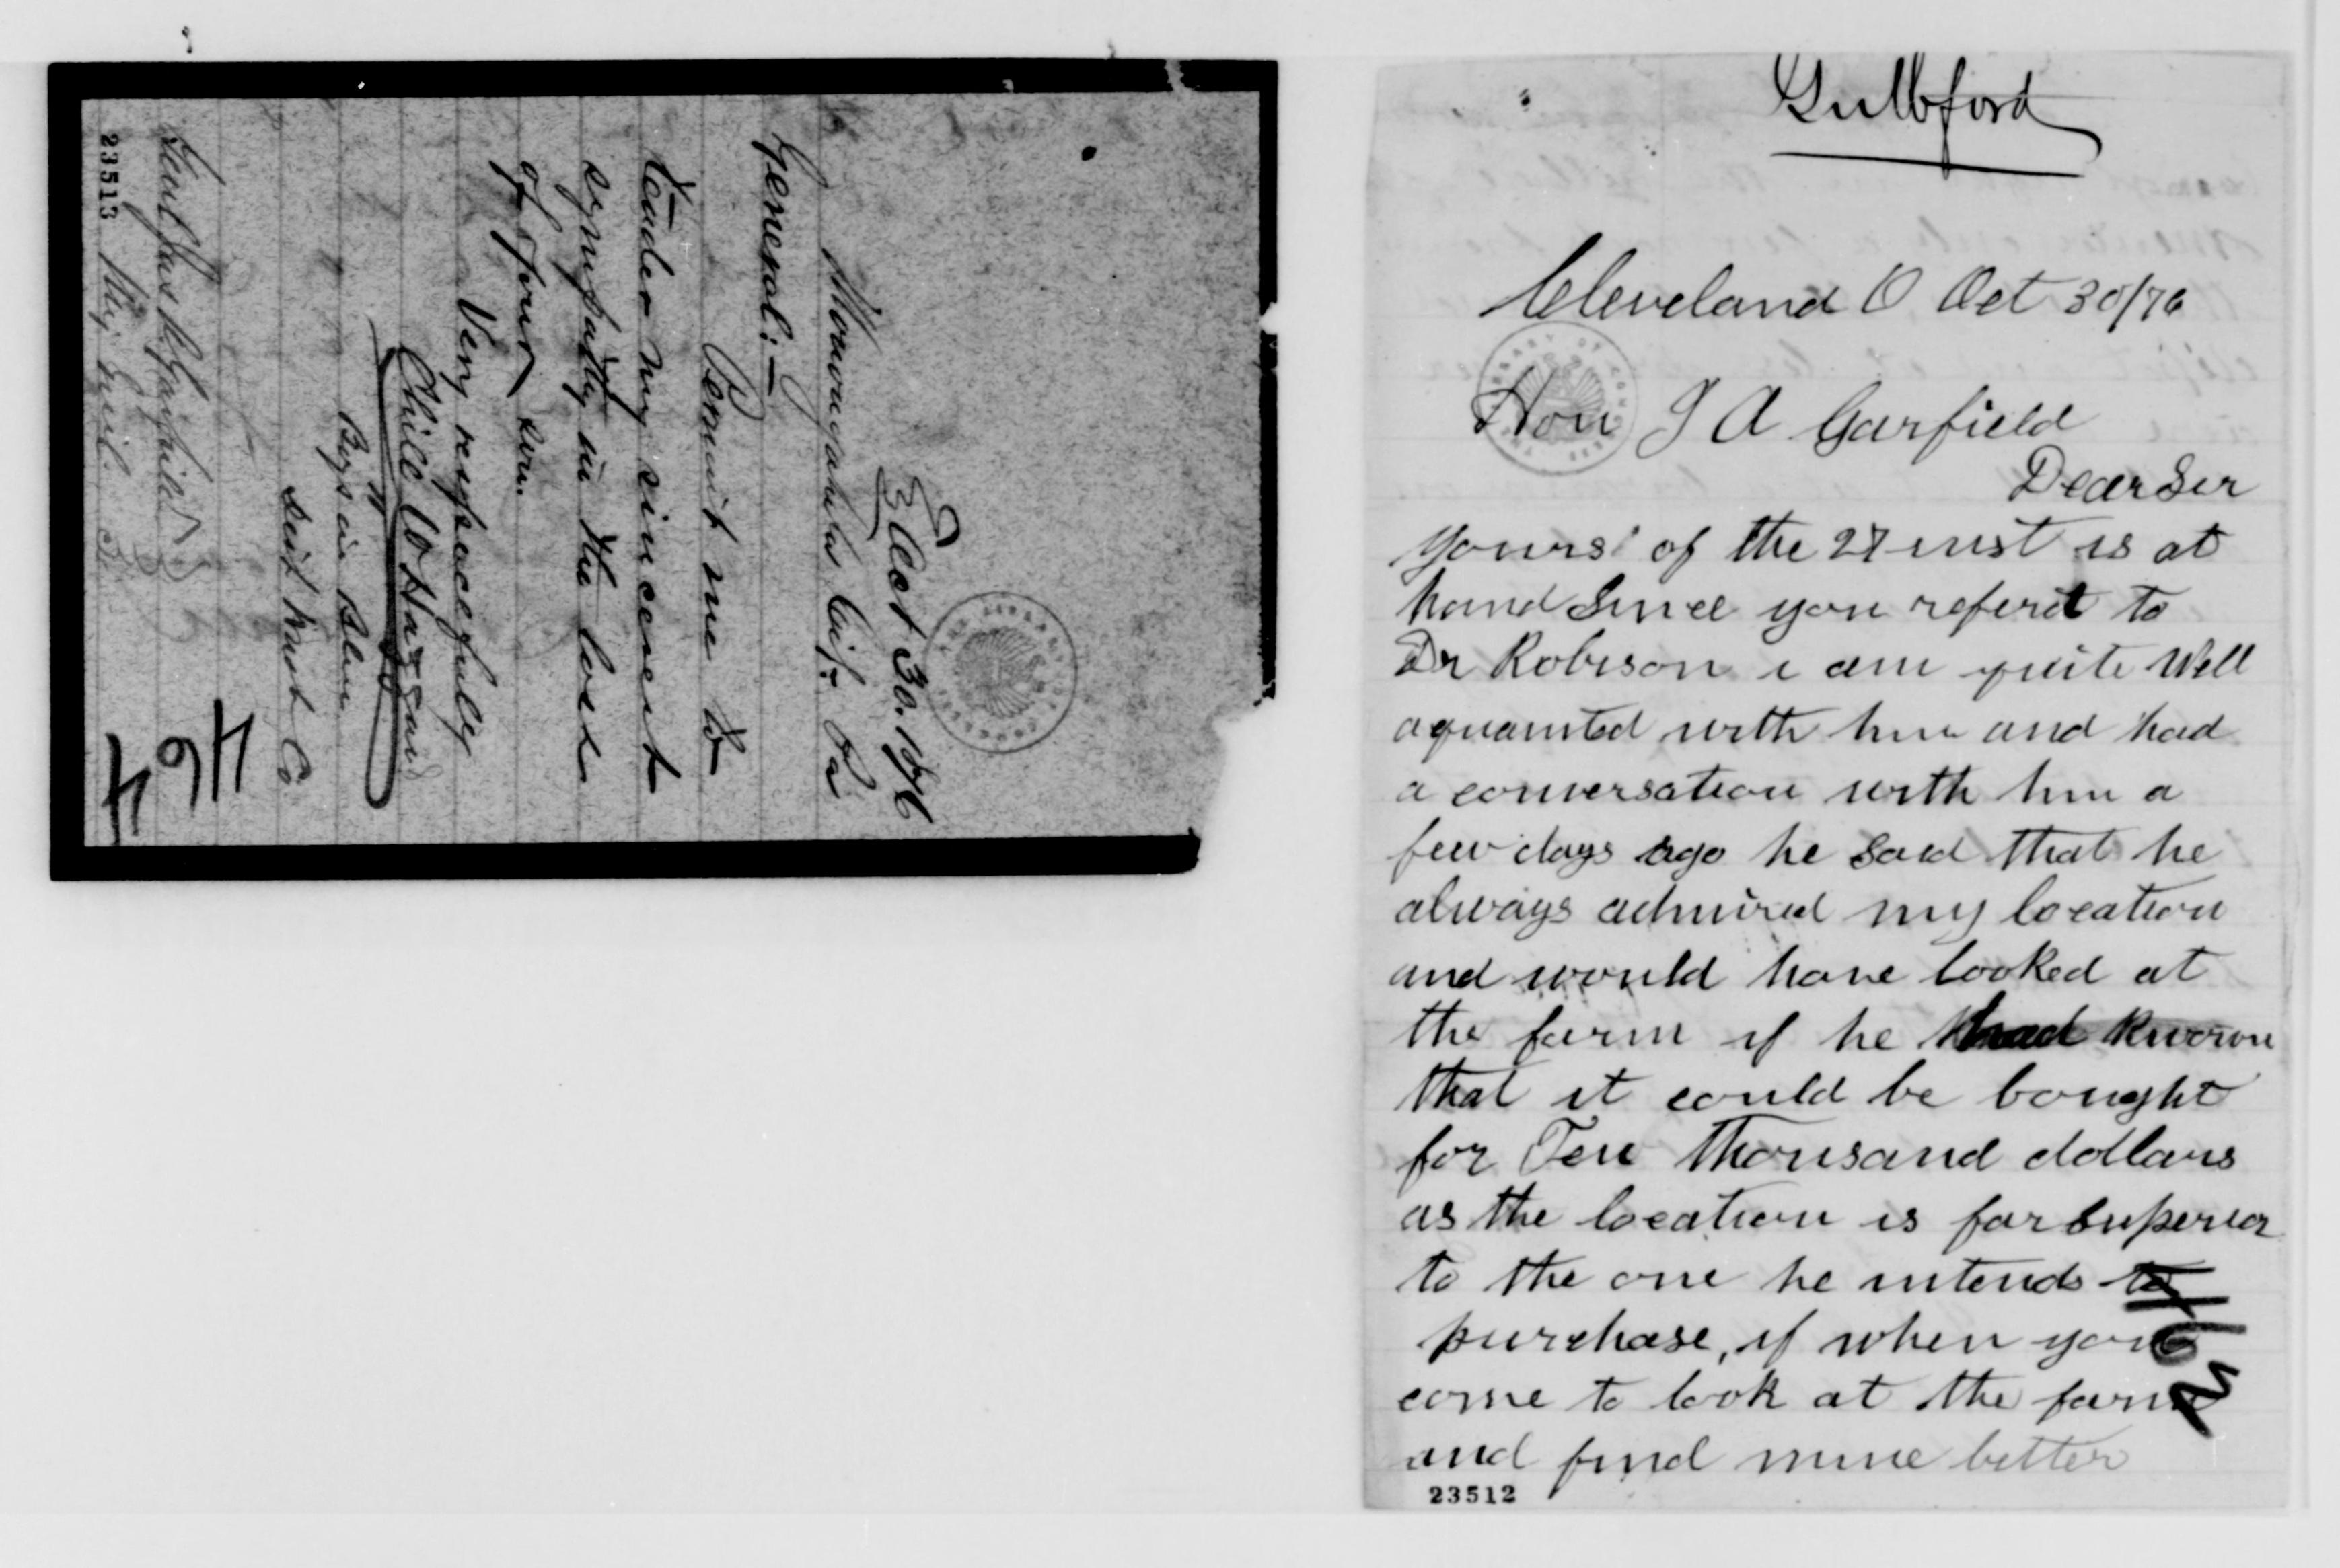 Oct 30. 1876
Monongahela City. Pa
General:—
Permit me to
tender my sincerest
sympathy in the loss
of your son.
Very respectfully
Chill W Hazzard
Boys in Blue
Genl Jas A Garfield
Maj Genl
23513
464
Cleveland O Oct 30/76
Hon J A Garfield
Dear Sir
yours of the 27 inst is at
hand Since you referd to
Dr Robison i am quite Well
aquainted with him and had
a conversation with him a
few days ago he said that he
always admired my location
and would have looked at
the farm if he had known
that it could be bought
for Ten thousand dollars
as the location is far superior
to the one he intends to
purchase, if when you
come to look at the farm
and find mine better
23512